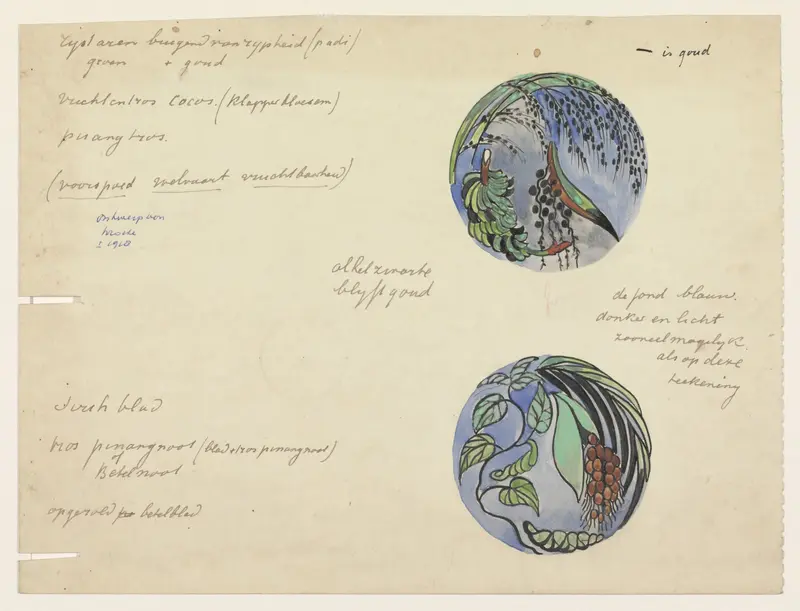 rystaren buigend van rypheid (padi)
groen + goud
— is goud
vruchtentros cocos. (Klapperbloesem)
pinang tros.
(voorspoed welvaart vruchtbaarheid)
ontwerpen
al het zwarte
blyft goud
de fond blauw.
donker en licht
zooveel mogelyk
als op deze
teekening
Sirih blad
tros pinangnoot (blad + tros pinangnoot)
of
Betelnoot
opgerold betelblad